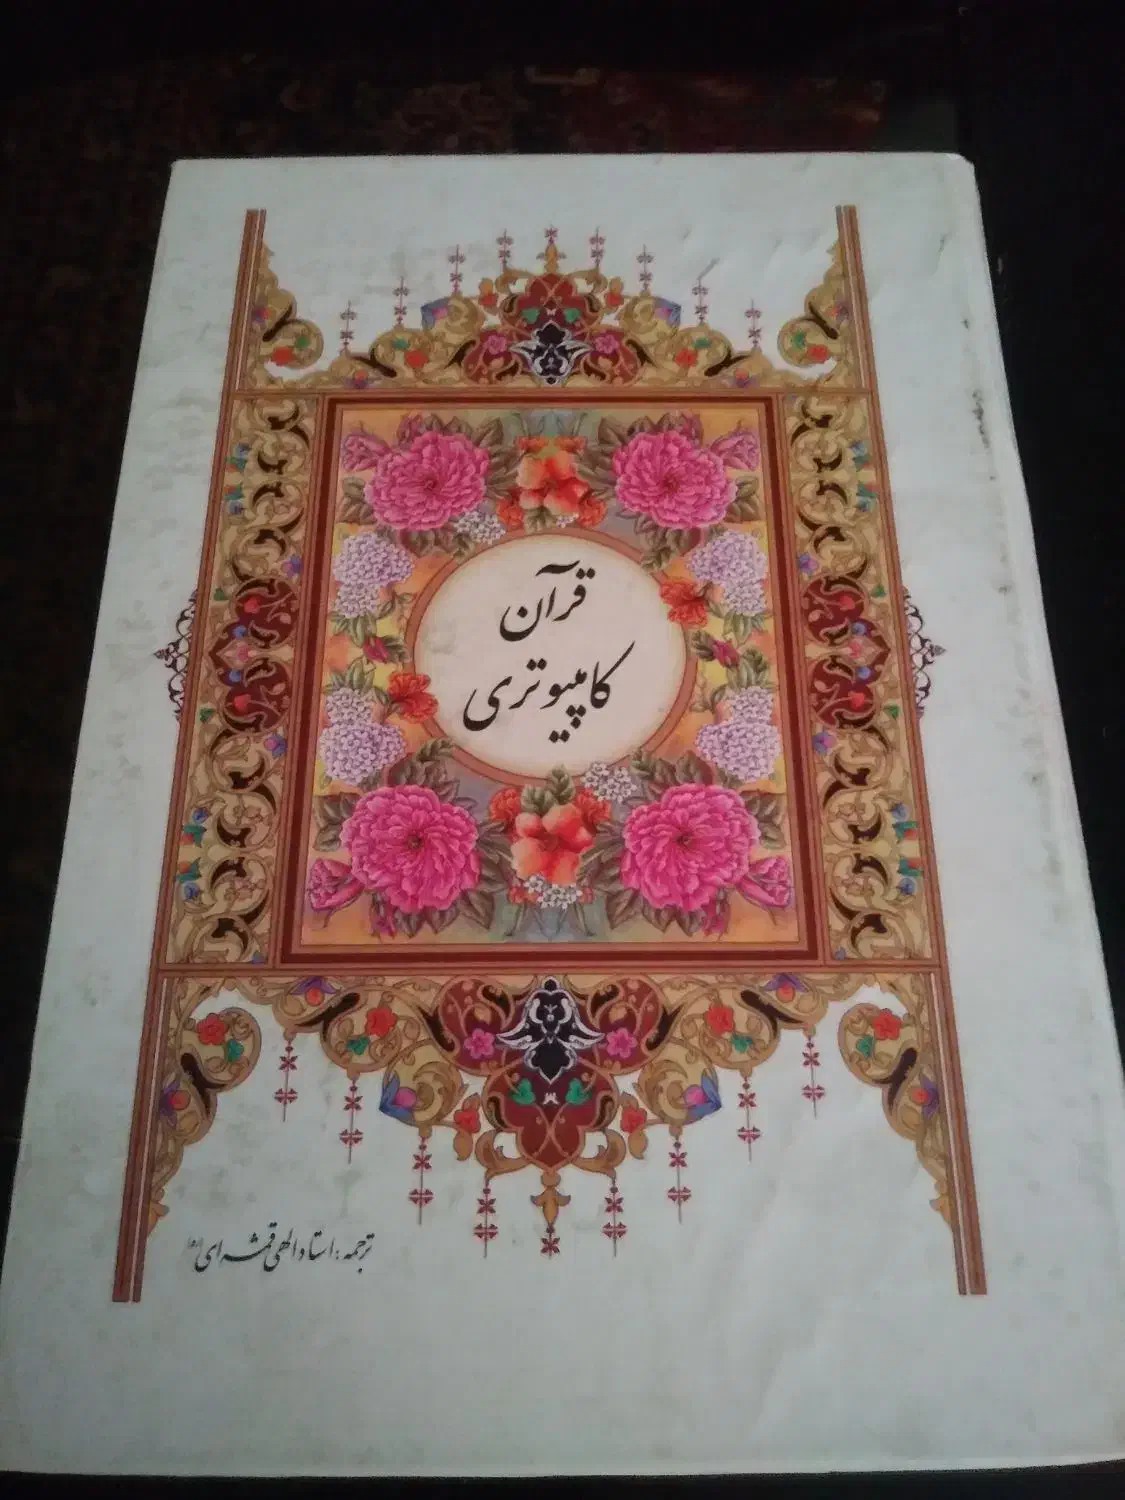 قرآن
کامپیوتری
ترجمه: استاد الهی قمشه‌ای